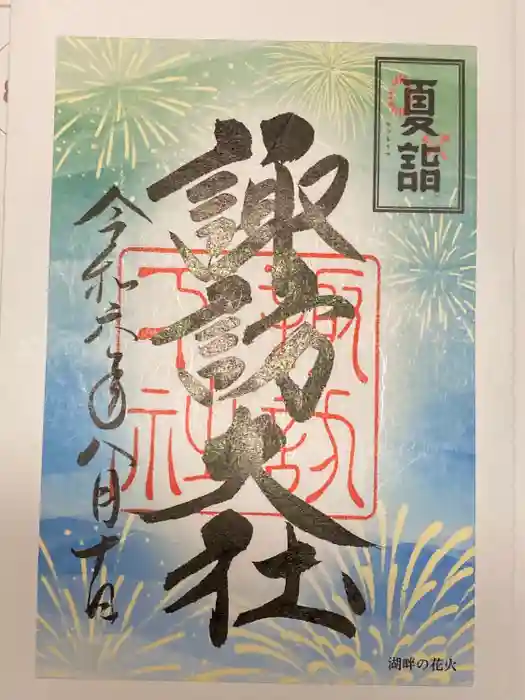 夏詣
諏訪大社
諏訪
下社
令和六年八月十日
湖畔の花火